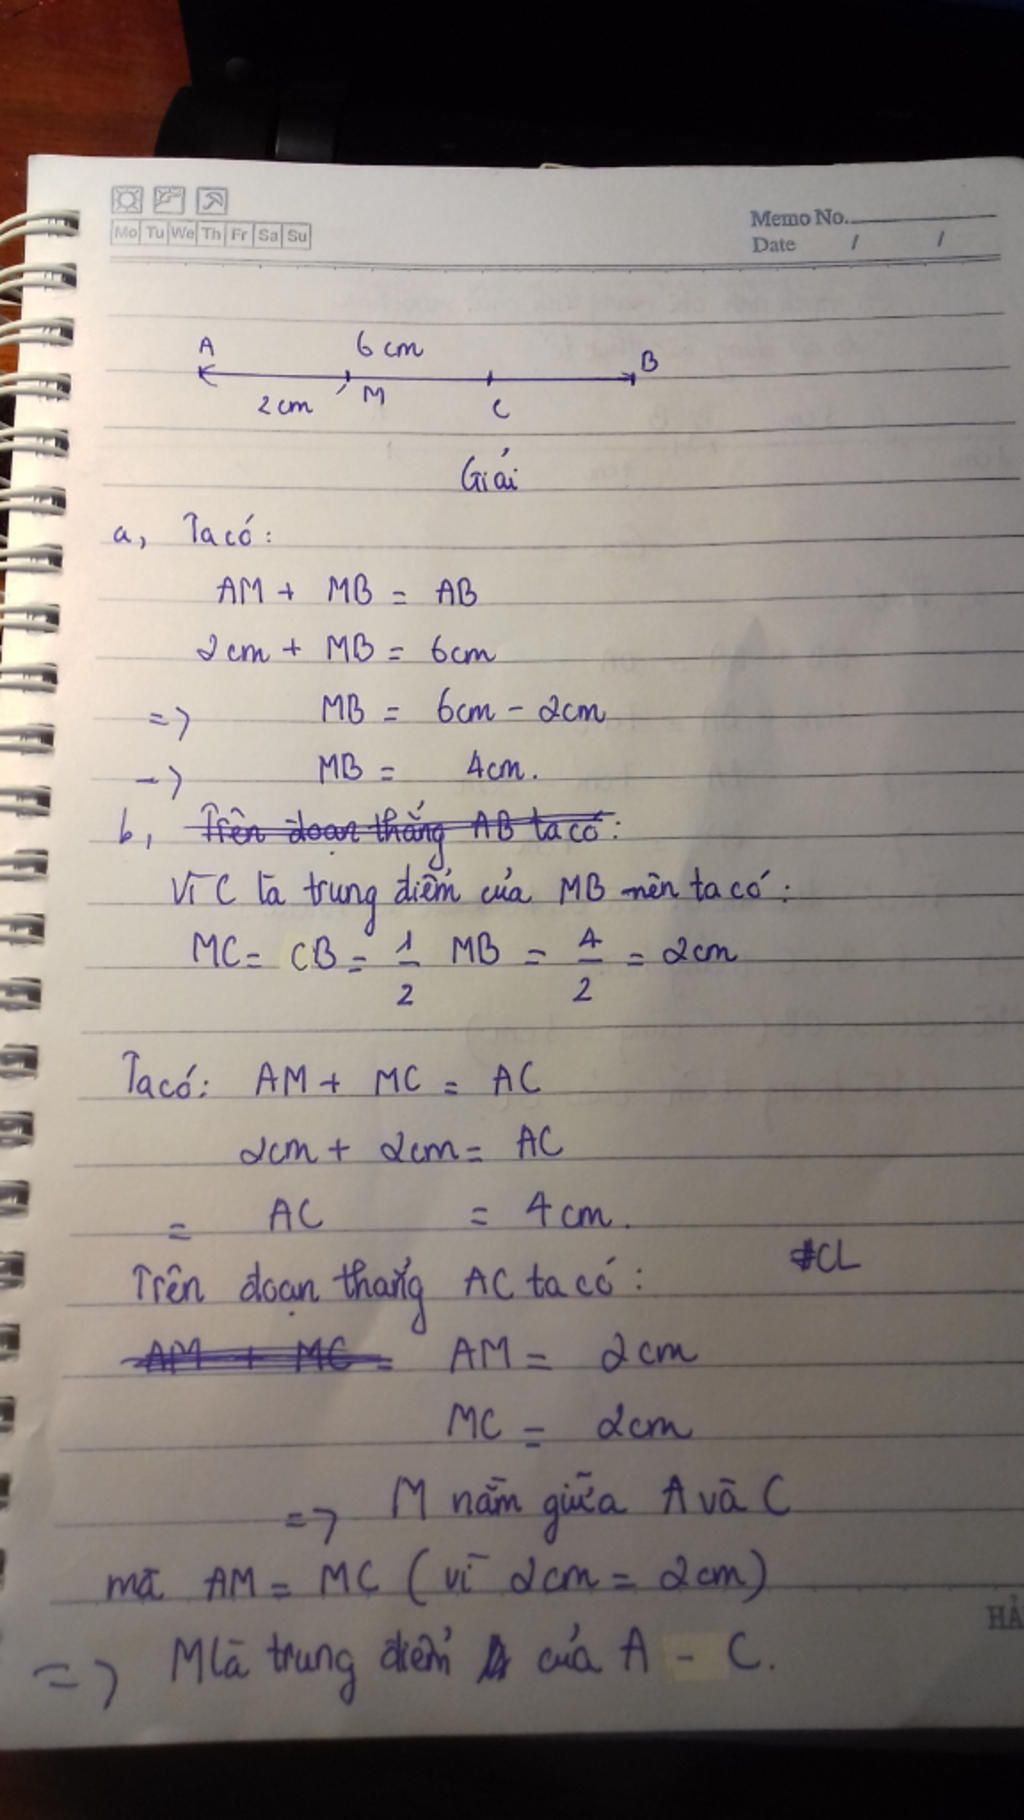 Mo Tu We Th Fr Sa Su
Memo No.
Date / /
A 6 cm B
2 cm M C
Giải
a, Ta có:
AM + MB = AB
2cm + MB = 6cm
=> MB = 6cm - 2cm
=> MB = 4cm.
b, Trên đoạn thẳng AB ta có:
Vì C là trung điểm của MB nên ta có:
MC = CB = 1/2 MB = 4/2 = 2cm
Ta có: AM + MC = AC
2cm + 2cm = AC
= AC = 4cm.
#CL
Trên đoạn thẳng AC ta có:
AM + MC = AM = 2cm
MC = 2cm
=> M nằm giữa A và C
mà AM = MC (vì 2cm = 2cm)
=> M là trung điểm của A - C.
HẢ